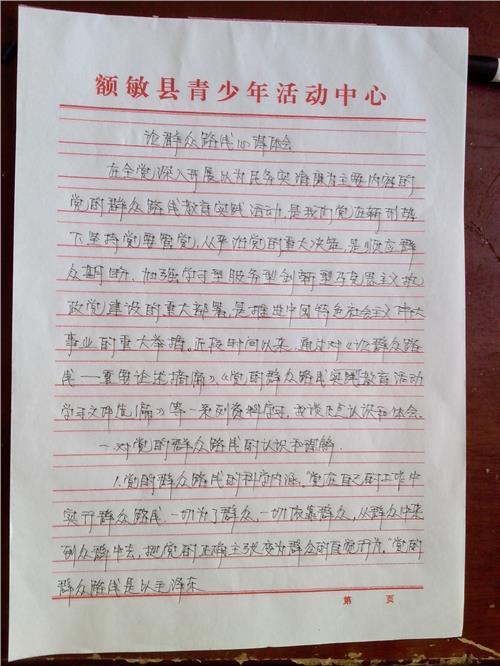 额敏县青少年活动中心
论群众路线心得体会
在全党深入开展以为民务实清廉为主要内容的
党的群众路线教育实践活动,是我们党在新形势
下坚持党要管党,从严治党的重大决策,是顺应群
众期盼,加强学习型服务型创新型马克思主义执
政党建设的重大部署,是推进中国特色社会主义伟大
事业的重大举措。近段时间以来,通过对《论群众路
线——重要论述摘编》《党的群众路线实践教育活动
学习文件选编》等一系列资料学习,我谈几点认识和体会。
一、对党的群众路线的认识和理解.
1.党的群众路线的科学内涵。党在自己的工作中
实行群众路线,一切为了群众,一切依靠群众,从群众中来
到众群中去,把党的正确主张变为群众的自觉行为。"党的
群众路线是以毛泽东
第 页